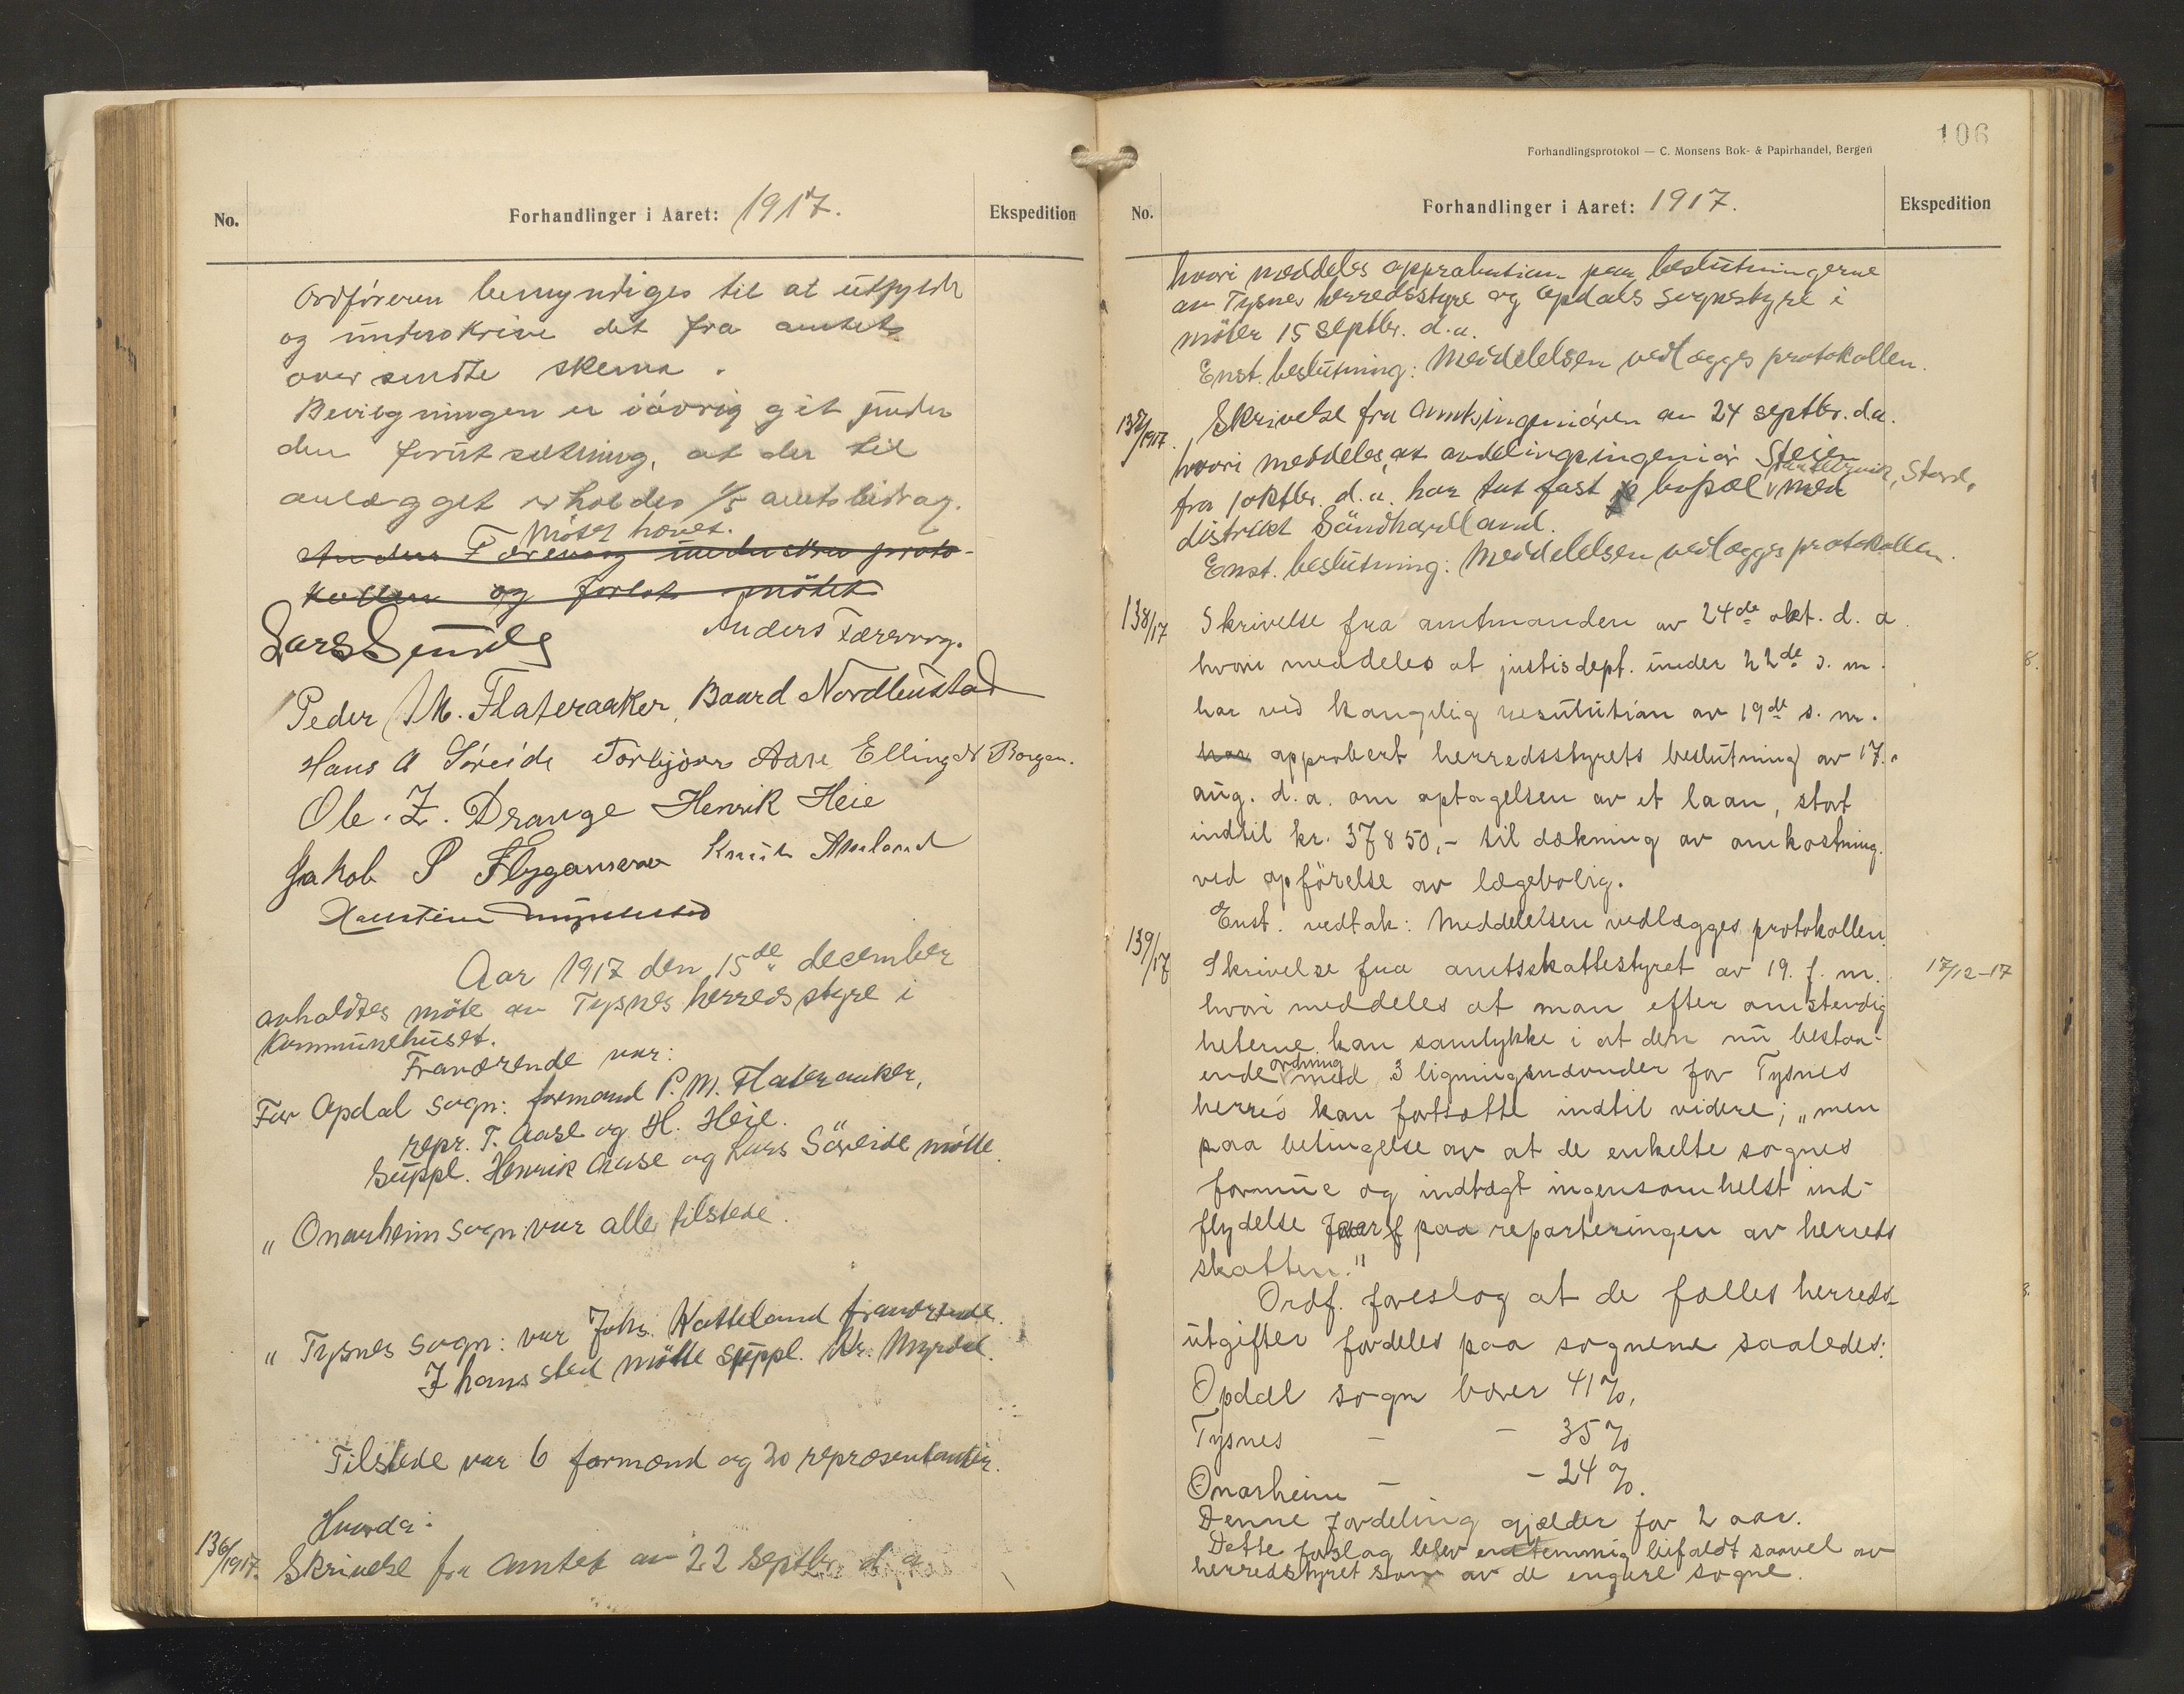 No.
Forhandlinger i Aaret: 1917.
Ekspedition
Ordföreren bemyndiges til at utfylde
og underskrive det fra amtet
over sendte skema.
Bevilgningen er iövrig git under
den forutsetning, at der til
anlægget erholdes 1/5 amtsbidrag.
Mötet hævet.
Anders Færevaag underskrev proto-
kollen og forlot mötet
Lars Sunde
Anders Færevaag.
Peder M. Flateraaker, Baard Nordbustad
Hans A Söreide Torbjörn Aase Elling N Borgen.
Ole. Z. Drange Henrik Heie
Jakob P Flygansvær Knut Amland
Aar 1917 den 15de december
avholdtes möte av Tysnes herredsstyre i
Kommunehuset.
Fraværende var:
For Opdal sogn: formand P. M. Flateraaker,
repr. T. Aase og H. Heie.
Suppl. Henrik Aase og Lars Söreide mötte.
" Onarheim sogn var alle tilstede.
" Tysnes sogn: var Johs. Hatteland fraværende.
I hans sted mötte suppl. Kr. Myrdal.
Tilstede var 6 formænd og 20 repræsentanter.
Hvorda:
136/1917. Skrivelse fra amtet av 22 septbr. d. a
106
Forhandlingsprotokol — C. Monsens Bok- & Papirhandel, Bergen
No.
Forhandlinger i Aaret: 1917.
Ekspedition
hvori meddeles approbation paa beslutningerne
av Tysnes herredsstyre og Opdals sognstyre i
möter 15 septbr. d.a.
Enst. beslutning: Meddelelsen vedlægges protokollen.
137/1917. Skrivelse fra Amtsingeniören av 24 septbr. d.a.
hvori meddeles, at avdelingsingeniör Steien
fra 1 oktbr. d.a. har tat fast bopæl Stord, med
distrikt Söndhordland.
Enst. beslutning: Meddelelsen vedlægges protokollen.
138/17 Skrivelse fra amtmanden av 24de okt. d. a.
hvori meddeles at justisdept. under 22de s. m.
har ved kongelig resolution av 19de s. m.
har approbert herredsstyrets beslutning av 17.
aug. d. a. om optagelsen av et laan, stort
indtil kr. 37850,- til dækning av omkostning.
ved opförelse av lægebolig.
Enst. vedtak: Meddelelsen vedlægges protokollen.
139/17 Skrivelse fra amtsskattestyret av 19. f. m. 17/12-17
hvori meddeles at man efter omstendig
heterne kan samtykke i at den nu bestaa-
ende ordning med 3 ligningsnævnder for Tysnes
herred kan fortsætte indtil videre; "men
paa betingelse av at de enkelte sognes
formue og indtægt ingensomhelst ind-
flydelse faar paa reparteringen av herreds
skatten."
Ordf. foreslog at de fælles herreds-
utgifter fordeles paa sognene saaledes:
Opdal sogn bærer 41%,
Tysnes - - 35%
Onarheim - - 24%.
Denne fordeling gjælder for 2 aar.
Dette forslag blev enstemmig bifaldt saavel av
herredstyret som av de engere sogne.